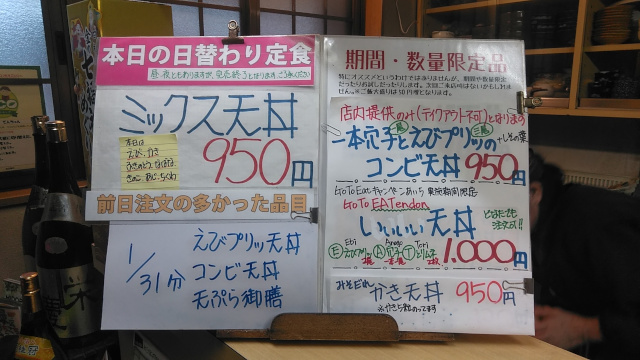 本日の日替わり定食
ミックス天丼
950円
本日は
えび・かき
きのこ あじ・ちくわ
前日注文の多かった品目
1/31分
えびプリッ天丼
コンビ天丼
天ぷら御膳
期間・数量限定品
店内提供のみ(テイクアウト不可)となります
一本穴子とえびプリッの
コンビ天丼 950円
GoToEatキャンペーンあいち 実施期間限定
GoTo EATendon
いいいい天丼
どなたでも
注文可!!
Ebi Anago Tori
1,000円
みそだれ かき天丼 950円